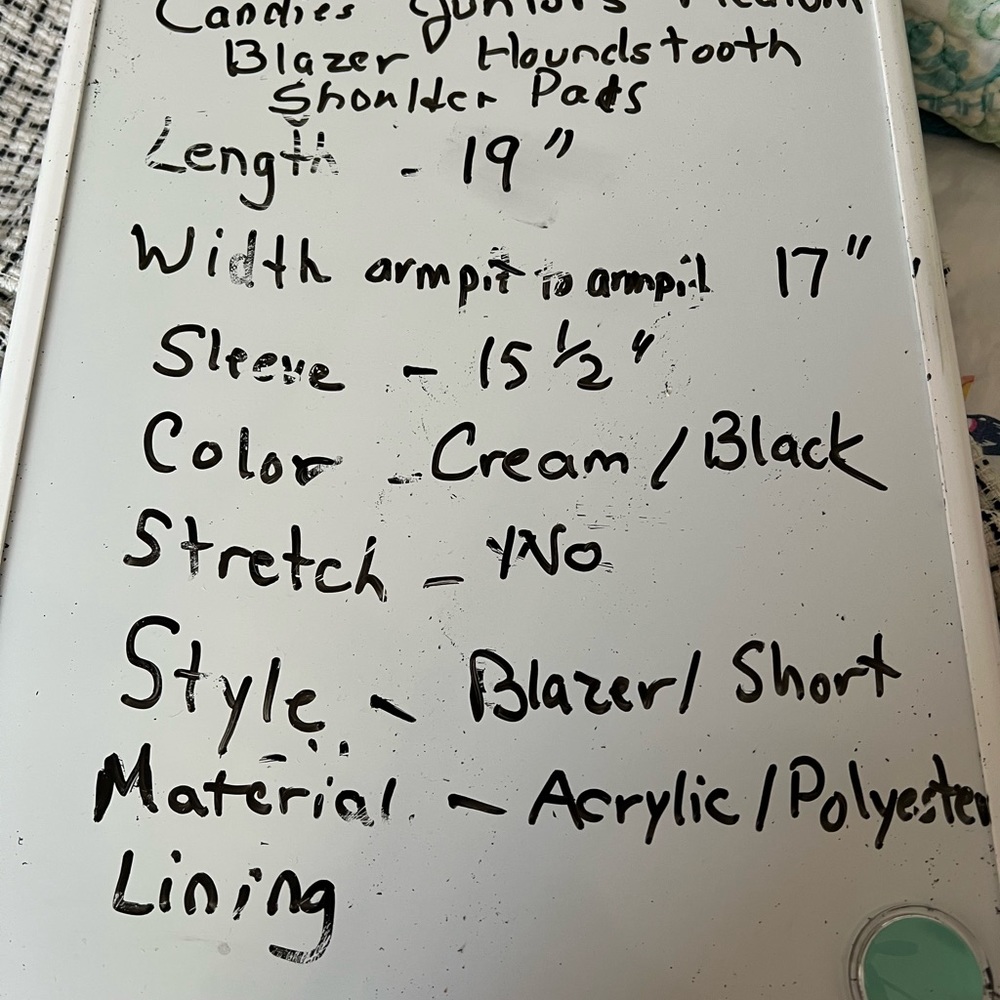 Candies Juniors Medium
Blazer Houndstooth
Shoulder Pads
Length - 19"
Width armpit to armpit 17"
Sleeve - 15 1/2"
Color - Cream / Black
Stretch - No
Style - Blazer/ Short
Material - Acrylic/Polyester
Lining